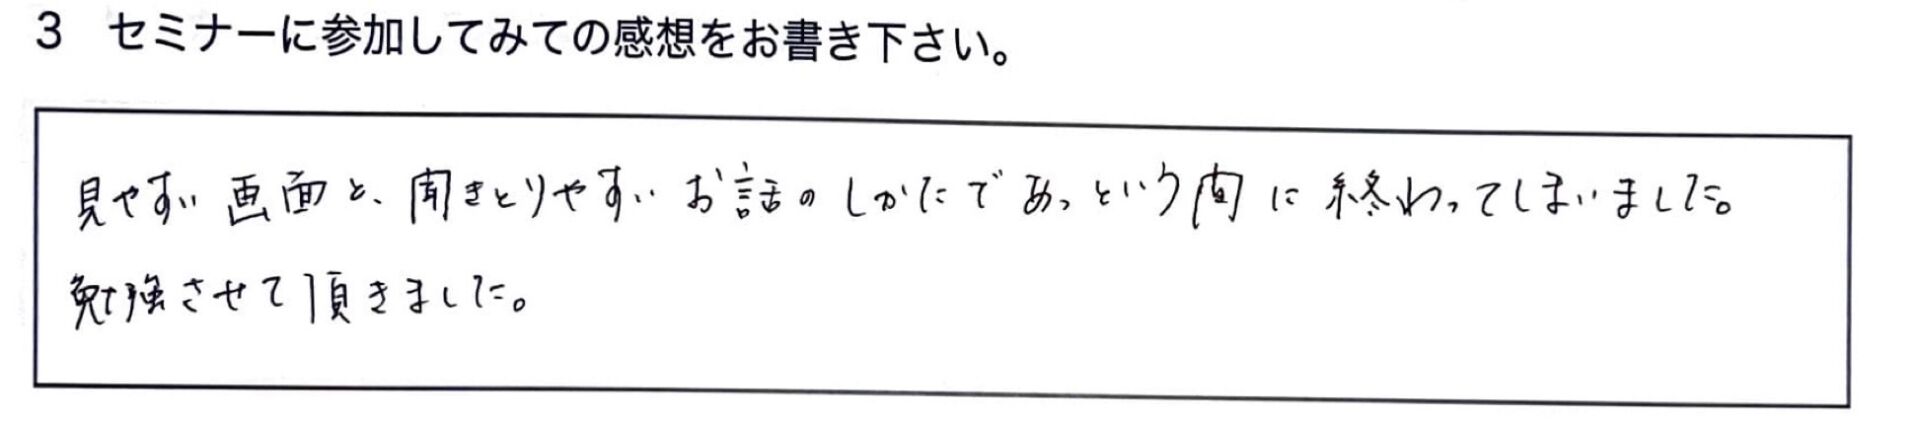 3 セミナーに参加してみての感想をお書き下さい。
見やすい画面と、聞きとりやすいお話のしかたであっという間に終わってしまいました。
勉強させて頂きました。